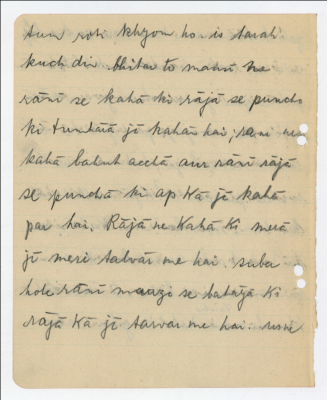 tum roti khyon ho. is tarah
kuch din bhitar to mahsi ne
rānī se kahā ki rājā se puncho
ki tumhārā jī kahān hai, rani ne
kahā bahut acchā aur rānī rājā
se punchā ki ap kā jī kahā
par hai. Rājā ne kahā ki merā
jī meri talvār me hai. suba
hote rānī se batāyā ki
rājā kā jī tarvār me hai.